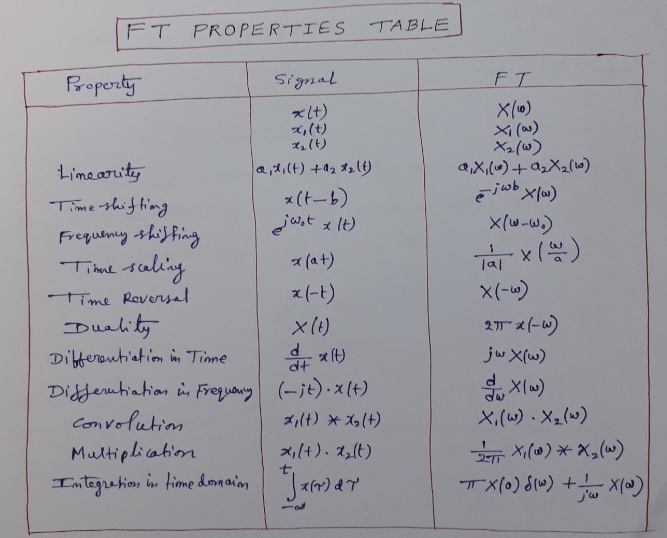 FT PROPERTIES TABLE
Property Signal FT
x(t) X(ω)
x₁(t) X₁(ω)
x₂(t) X₂(ω)
Linearity a₁x₁(t) + a₂x₂(t) a₁X₁(ω) + a₂X₂(ω)
Time shifting x(t-b) e^{-jωb} X(ω)
Frequency shifting e^{jω₀t} x(t) X(ω-ω₀)
Time scaling x(at) 1/|a| X(ω/a)
Time Reversal x(-t) X(-ω)
Duality X(t) 2π x(-ω)
Differentiation in Time d/dt x(t) jω X(ω)
Differentiation in Frequency (-jt)·x(t) d/dω X(ω)
Convolution x₁(t) * x₂(t) X₁(ω)·X₂(ω)
Multiplication x₁(t)·x₂(t) 1/2π X₁(ω) * X₂(ω)
Integration in time domain ∫_{-∞}^{t} x(τ) dτ π X(0) δ(ω) + 1/jω X(ω)